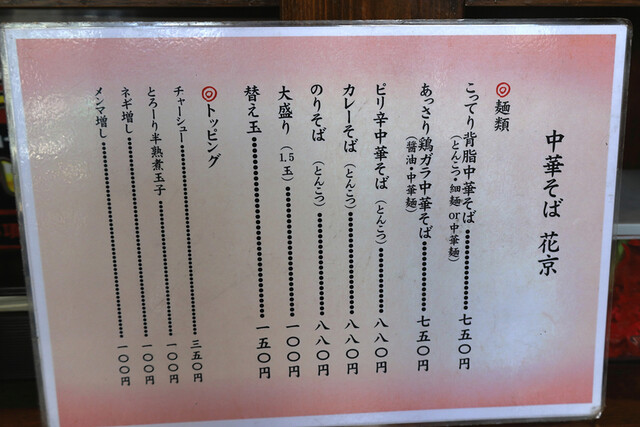 中華そば 花京
◎麺類
こってり背脂中華そば………七五〇円
(とんこつ・細麺or中華麺)
あっさり鶏ガラ中華そば………七五〇円
(醤油・中華麺)
ピリ辛中華そば(とんこつ)………八八〇円
カレーそば(とんこつ)………八八〇円
のりそば(とんこつ)………八八〇円
大盛り(1.5玉)………一〇〇円
替え玉………一五〇円
◎トッピング
チャーシュー………三五〇円
とろーり半熟煮玉子………一〇〇円
ネギ増し………一〇〇円
メンマ増し………一〇〇円